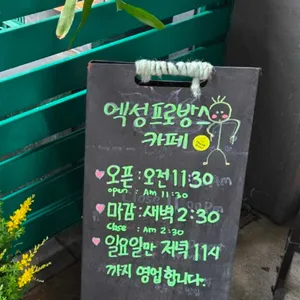 엑성프로방스
카페
오픈 : 오전 11:30
open : Am 11:30
마감 : 새벽 2:30
close : Am 2:30
일요일만 저녁 11시
까지 영업합니다.